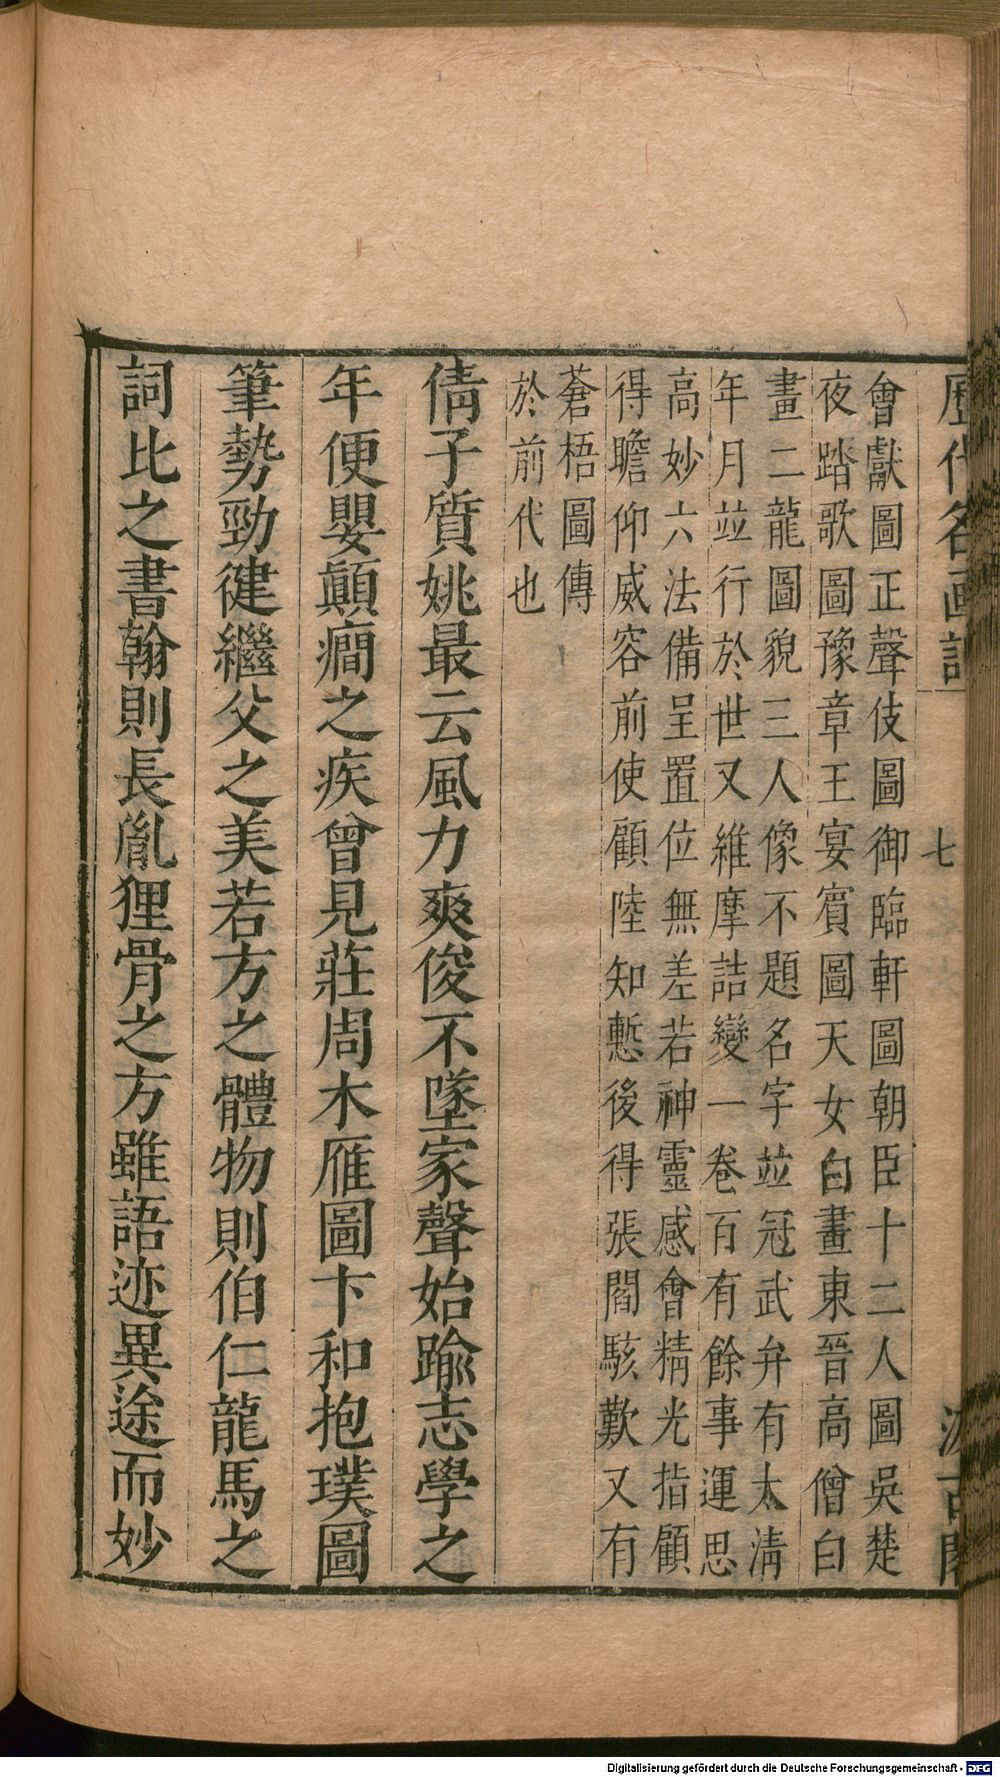 歷代名画記
七
汲古閣
會獻圖正聲伎圖御臨軒圖朝臣十二人圖吳楚
夜踏歌圖豫章王宴賓圖天女白畫東晉高僧白
畫二龍圖貌三人像不題名字並冠武弁有太清
年月並行於世又維摩詰變一卷百有餘事運思
高妙六法備呈置位無差若神靈感會精光指顧
得瞻仰威容前使顧陸知慙後得張閻駭歎又有
蒼梧圖傳
於前代也
倩子質姚最云風力爽俊不墜家聲始踰志學之
年便嬰顚癎之疾曾見莊周木雁圖卞和抱璞圖
筆勢勁徤繼父之美若方之體物則伯仁龍馬之
詞比之書翰則長胤狸骨之方雖語迹異途而妙
Digitalisierung gefördert durch die Deutsche Forschungsgemeinschaft - DFG